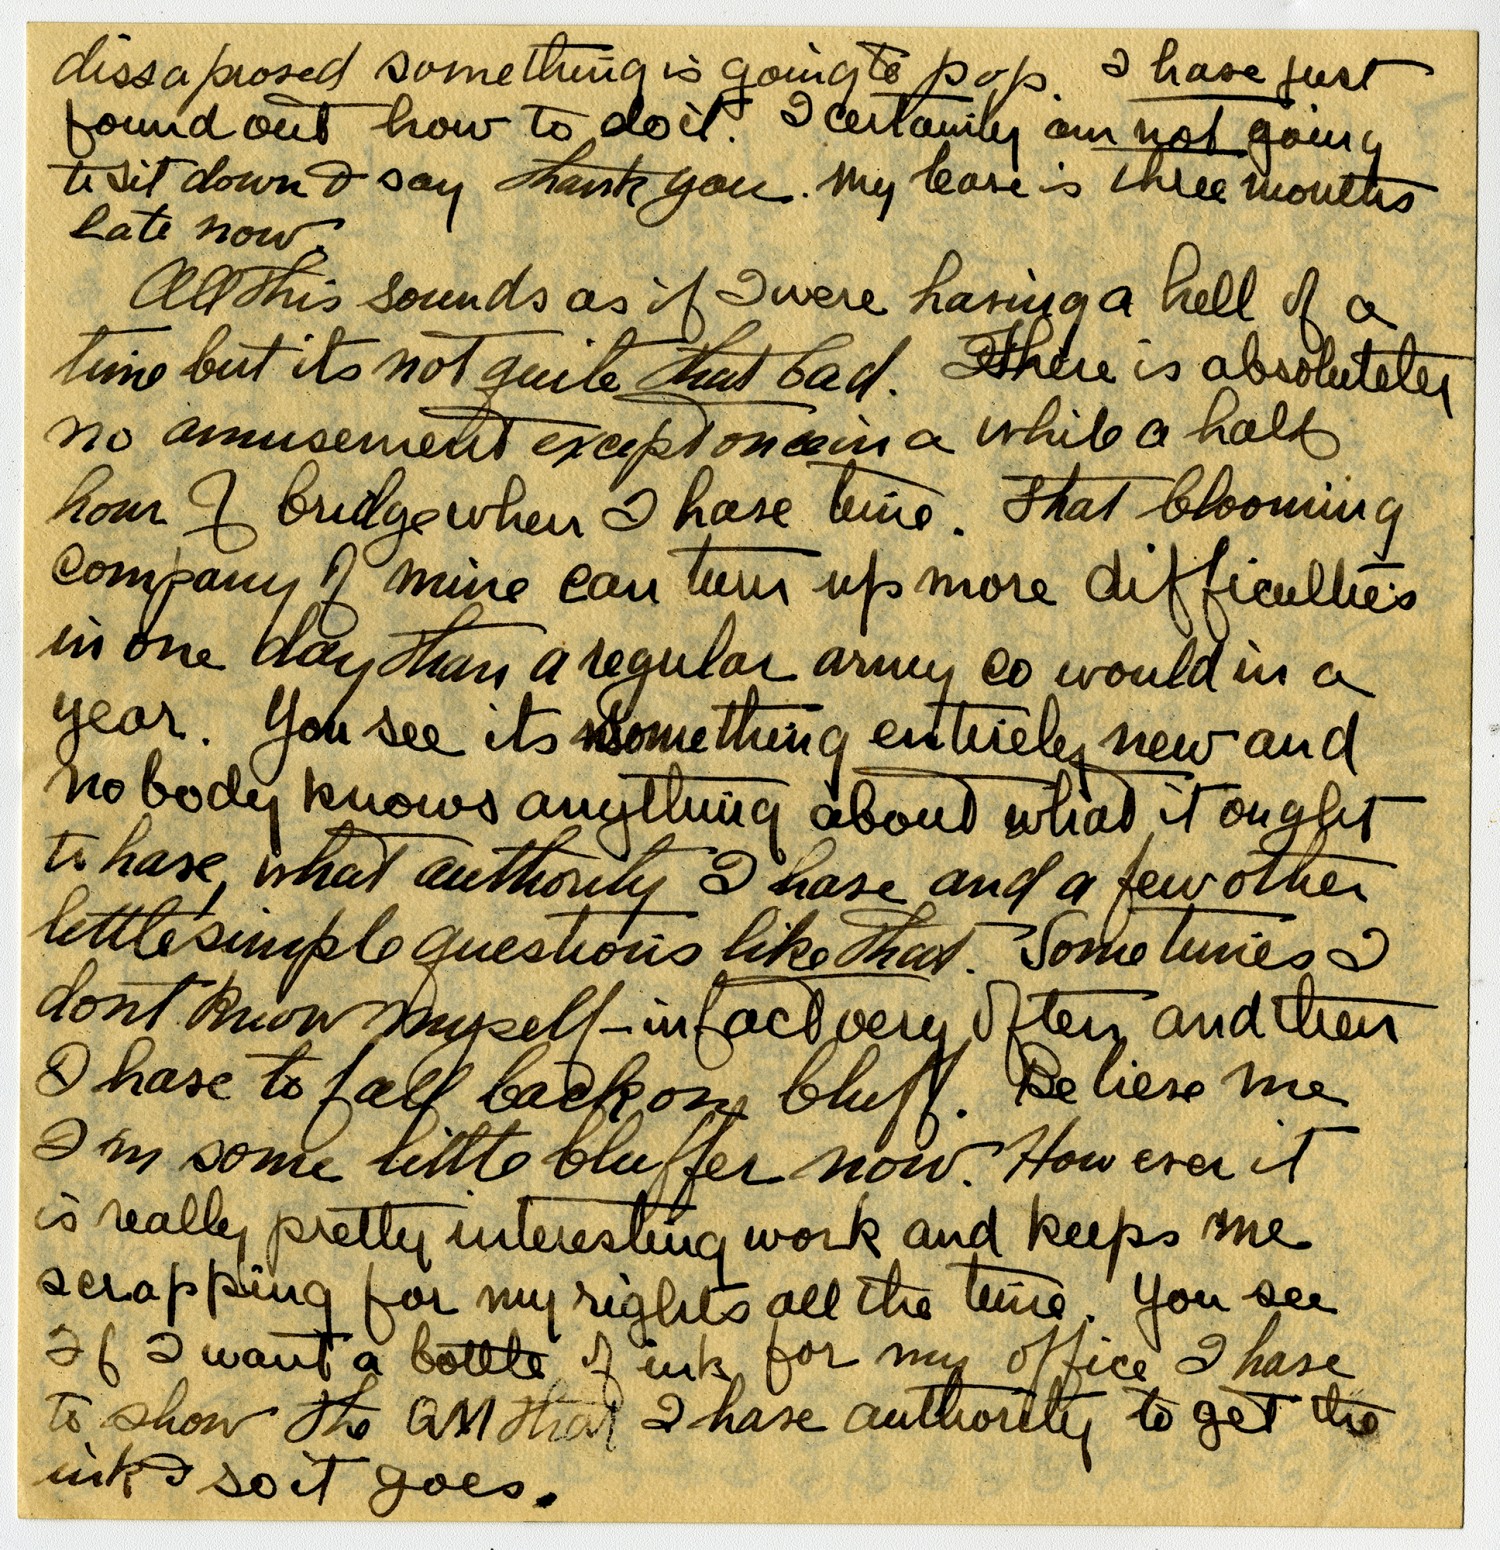 dissaproved something is going to pop. I have just
found out how to do it. I certainly am not going
to sit down & say thank you. My leave is three months
late now.
All this sounds as if I were having a hell of a
time but its not quite that bad. There is absolutely
no amusement except once in a while a half
hour of bridge when I have time. That blooming
company of mine can turn up more difficulties
in one day than a regular army co would in a
year. You see its something entirely new and
nobody knows anything about what it ought
to have, what authority I have and a few other
little simple questions like that. Sometimes I
dont know myself - in fact very often and then
I have to fall back on bluff. Believe me
I'm some little bluffer now. However it
is really pretty interesting work and keeps me
scrapping for my rights all the time. You see
If I want a bottle of ink for my office I have
to show the QM that I have authority to get the
ink & so it goes.